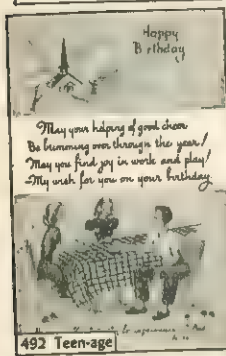 Happy
Birthday
May your helping of good cheer
Be brimming over through the year!
May you find joy in work and play!
—My wish for you on your birthday.
492 Teen-age